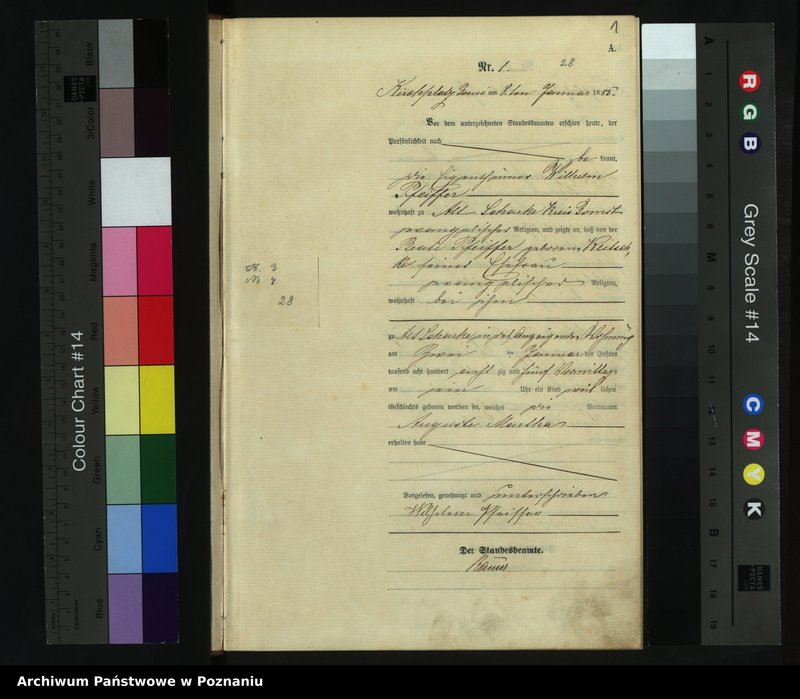 1
A.
Nr. 1. 28
am 8ten Januar 1885.
Vor dem unterzeichneten Standesbeamten erschien heute, der
Persönlichkeit nach
be kannt,
der Eigenthümer Wilhelm
Pfeiffer
wohnhaft zu Alt Kreis Bomst
evangelischer Religion, und zeigte an, daß von der
Pfeiffer geborenen
seiner Ehefrau
evangelischer Religion,
wohnhaft bei ihm
zu Alt in des Anzeigenden Wohnung
am zwei ten Januar des Jahres
tausend acht hundert acht zig und fünf Vormittags
um Uhr ein Kind weib lichen
Geschlechts geboren worden sei, welches die Vornamen
Auguste Martha
erhalten habe
Vorgelesen, genehmigt und unterschrieben
Wilhelm Pfeiffer
Der Standesbeamte.
K. 3
No 4
28
Colour Chart #14
Black
3/Color
White
Magenta
Red
Yellow
Green
Cyan
Blue
Centimetres
DANES PICTA
Grey Scale #14
R
G
B
C
M
Y
K
A
1
2
3
4
5
6
M
8
9
10
11
12
13
14
15
B
17
18
19
DANES PICTA
Archiwum Państwowe w Poznaniu